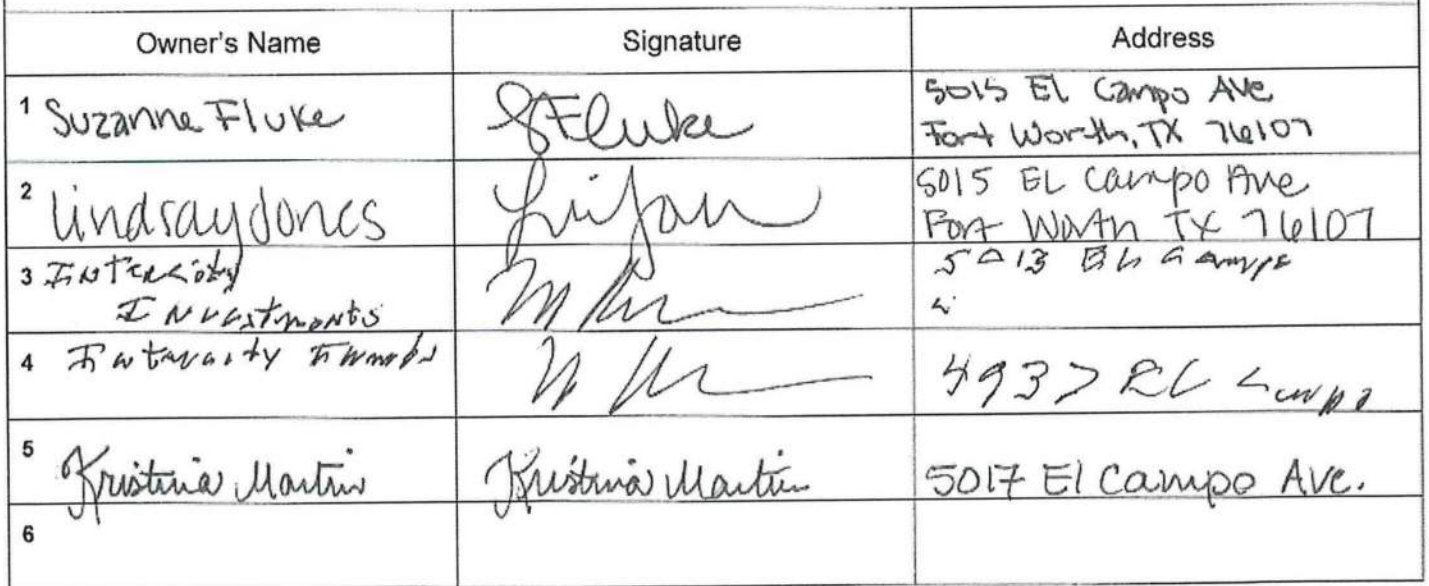 Owner's Name Signature Address
1 Suzanne Fluke SFluke 5015 El Campo Ave
Fort Worth, TX 76107
2 Lindsay Jones 5015 El Campo Ave
Fort Worth TX 76107
3 Intercity 5013 El Campo
Investments
4 Intercity 4937 El Campo
5 Kristina Martin Kristina Martin 5017 El Campo Ave.
6